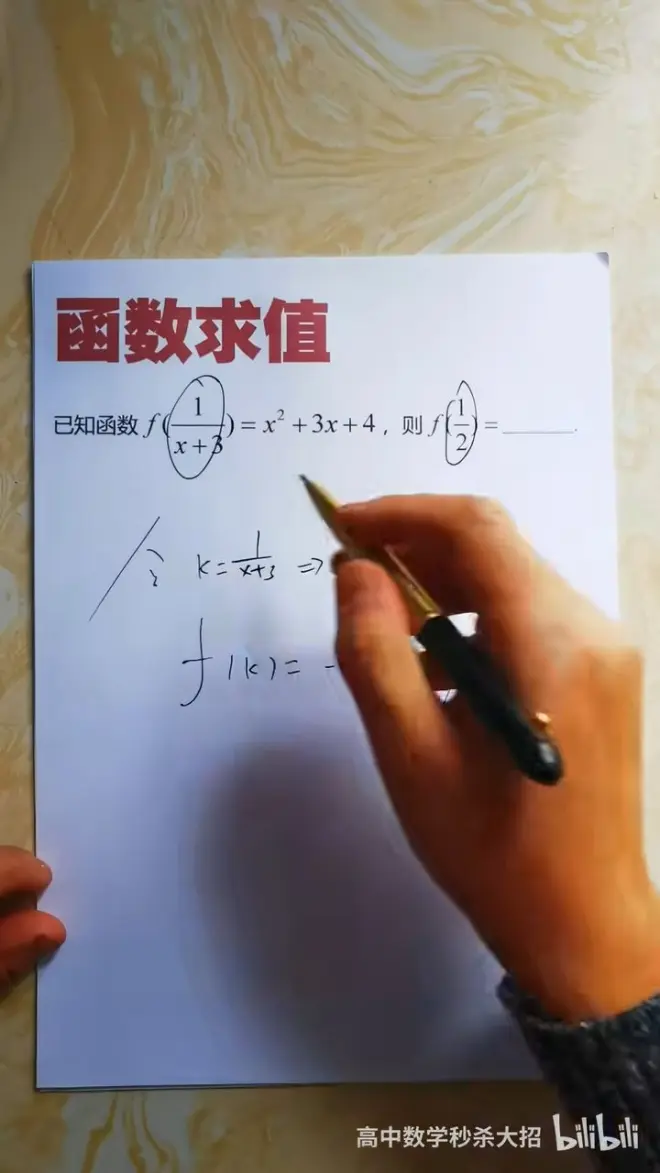 函数求值
已知函数 f(1/(x+3)) = x² + 3x + 4，则 f(1/2) = ______.
令 k = 1/(x+3) ⇒
f(k) = -
高中数学秒杀大招 bilibili